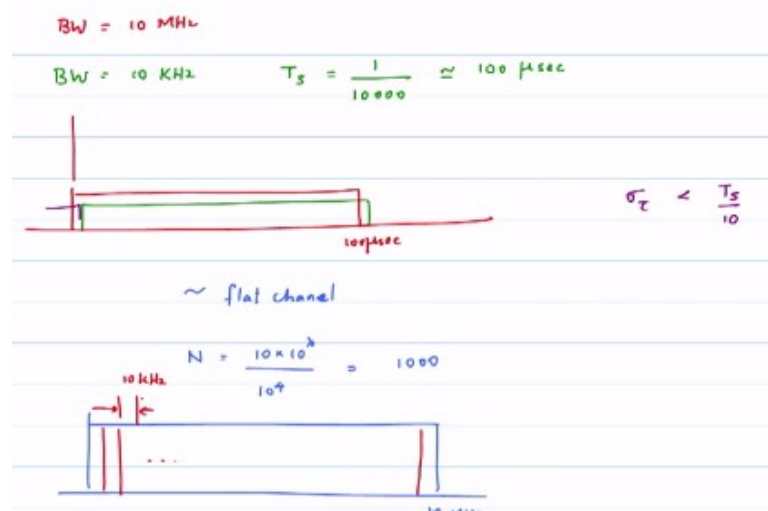 BW = 10 MHz
BW = 10 KHz    T_s = 1/10000 ≃ 100 μsec
σ_τ < T_s/10
100μsec
~ flat chanel
N = 10 × 10^6/10^4 = 1000
10 kHz
...